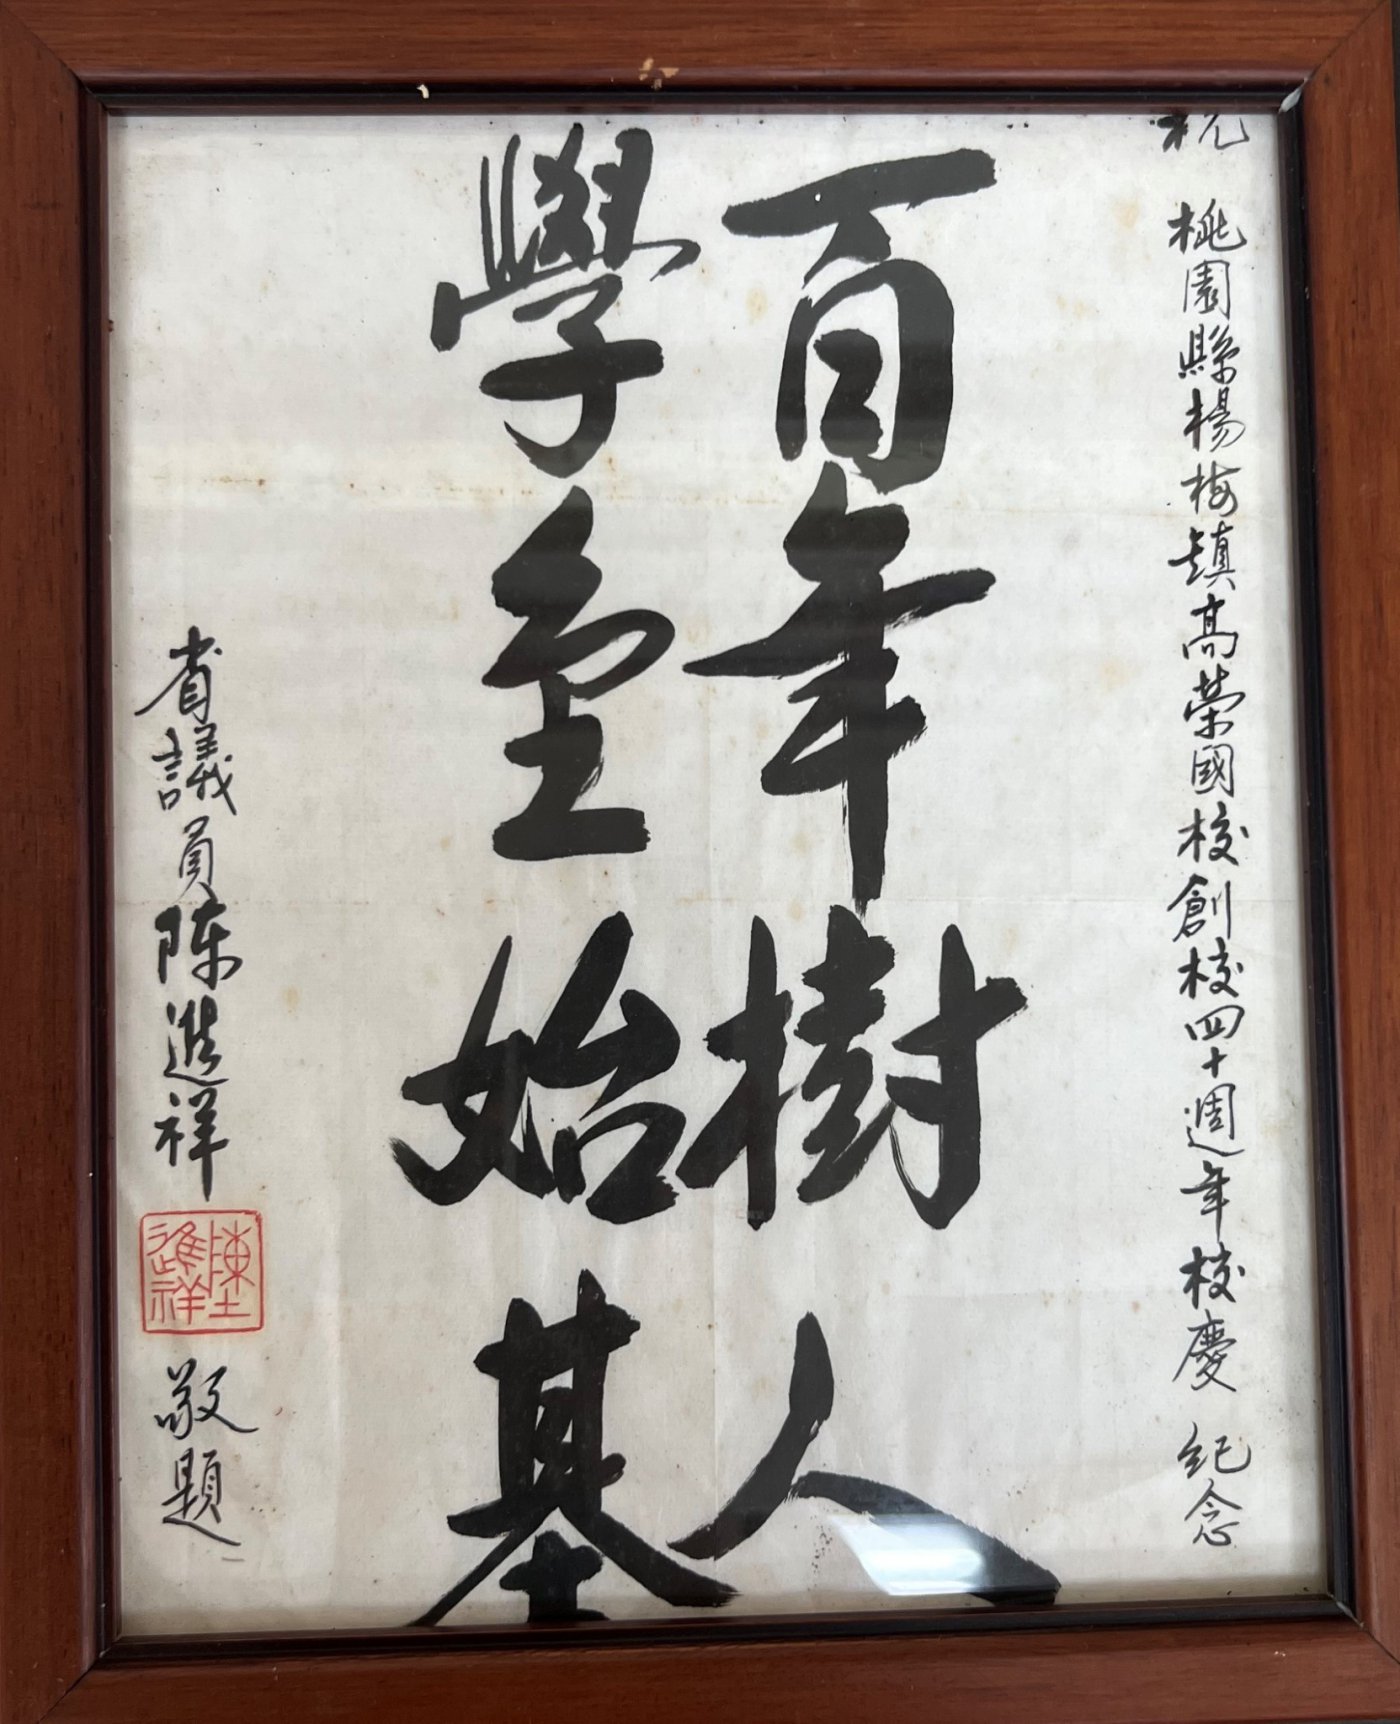 祝 桃園縣楊梅鎮高榮國校創校四十週年校慶 紀念
百年樹人
學至始基
省議員陳進祥
陳進祥
敬題